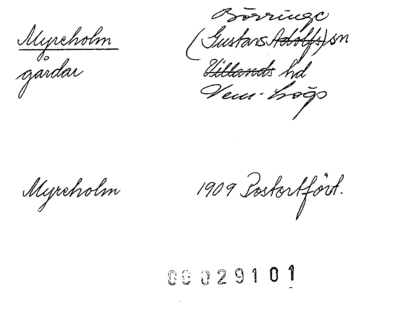 Börringe
Myreholm (Gustavs Adolfs) sn
gårdar Villands hd
Vem.högs
Myreholm 1909 Postortfört.
00029101